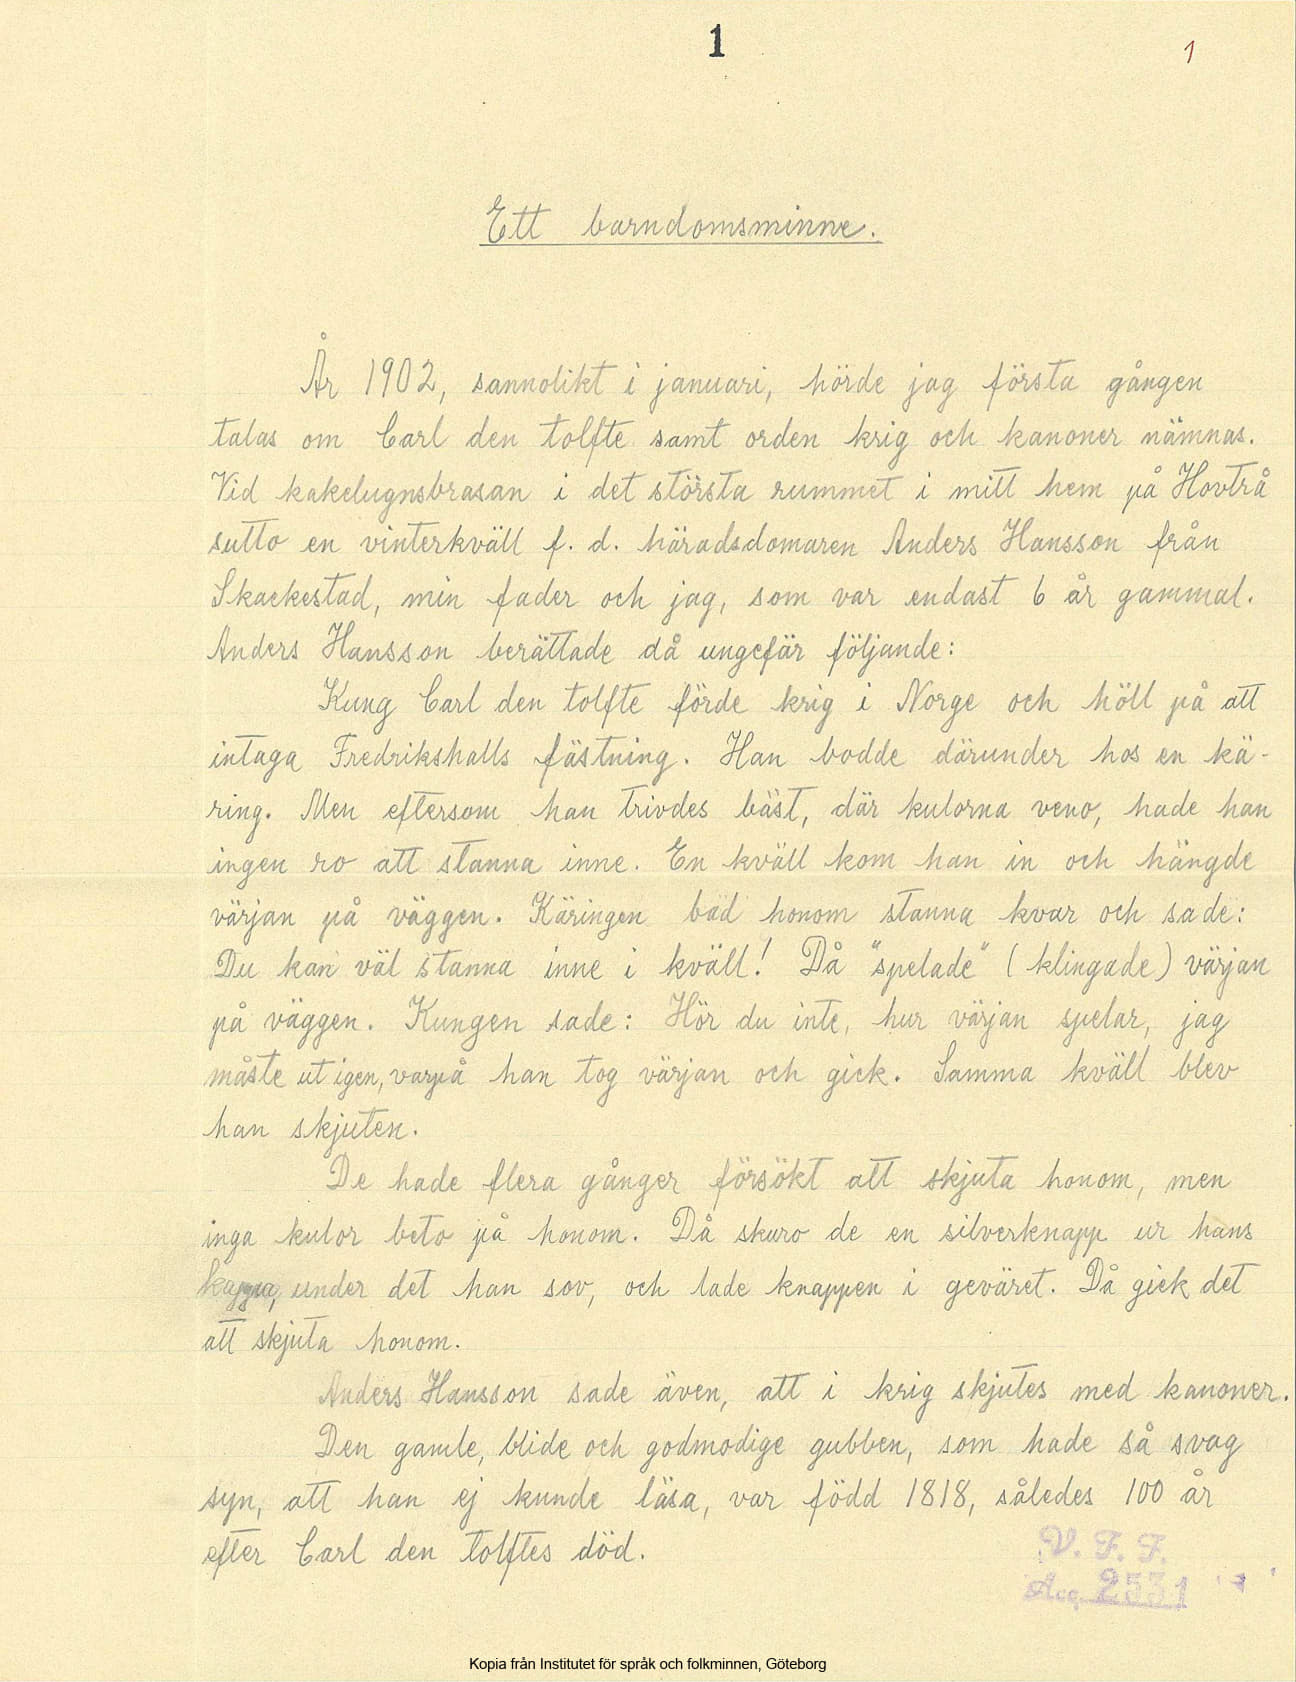 1
1
Ett barndomsminne.
År 1902, sannolikt i januari, hörde jag första gången
talas om Carl den tolfte samt orden krig och kanoner nämnas.
Vid kakelugnsbrasan i det största rummet i mitt hem på Hovtrå
sutto en vinterkväll f. d. häradsdomaren Anders Hansson från
Skackestad, min fader och jag, som var endast 6 år gammal.
Anders Hansson berättade då ungefär följande:
Kung Carl den tolfte förde krig i Norge och höll på att
intaga Fredrikshalls fästning. Han bodde därunder hos en kä-
ring. Men eftersom han trivdes bäst, där kulorna veno, hade han
ingen ro att stanna inne. En kväll kom han in och hängde
värjan på väggen. Käringen bad honom stanna kvar och sade:
Du kan väl stanna inne i kväll! Då "spelade" (klingade) värjan
på väggen. Kungen sade: Hör du inte, hur värjan spelar, jag
måste ut igen, varpå han tog värjan och gick. Samma kväll blev
han skjuten.
De hade flera gånger försökt att skjuta honom, men
inga kulor beto på honom. Då skuro de en silverknapp ur hans
kappa, under det han sov, och lade knappen i geväret. Då gick det
att skjuta honom.
Anders Hansson sade även, att i krig skjutes med kanoner.
Den gamle, blide och godmodige gubben, som hade så svag
syn, att han ej kunde läsa, var född 1818, således 100 år
efter Carl den tolftes död.
V. F. F.
Acc. 2531
Kopia från Institutet för språk och folkminnen, Göteborg